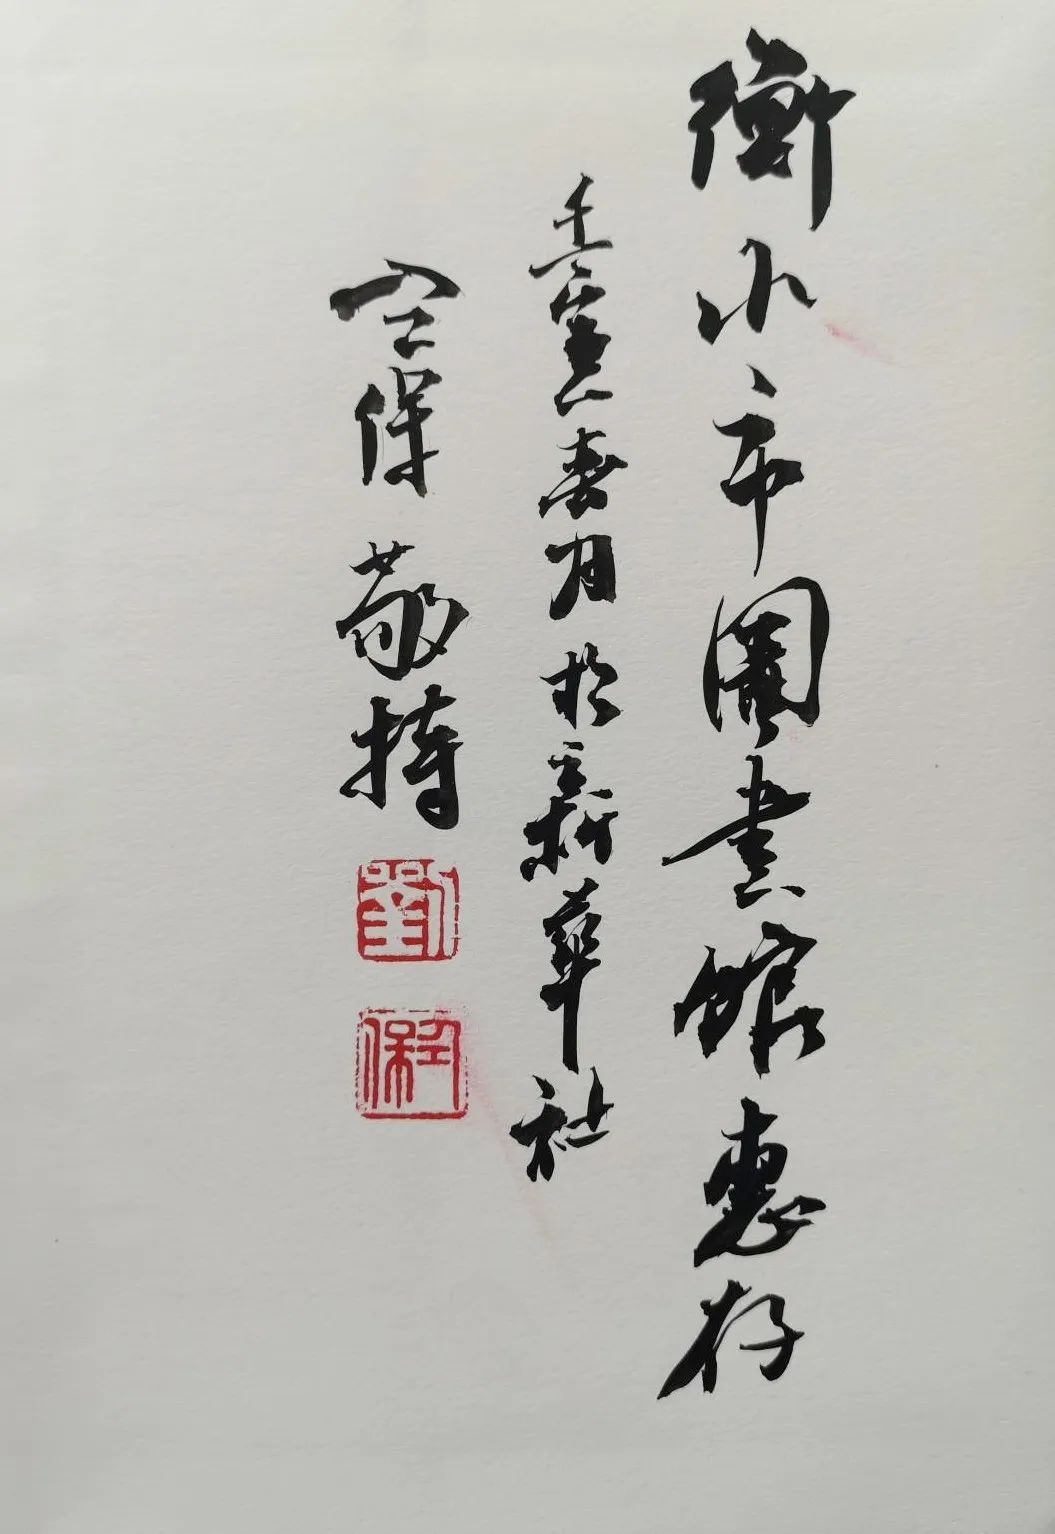 衡水市圖書館惠存
壬寅春月於新華社
全保敬持
劉
全保